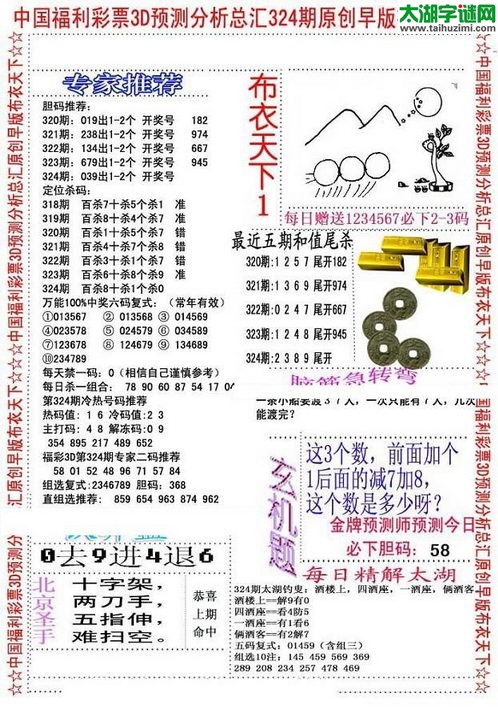 中国福利彩票3D预测分析总汇324期原创早版
太湖字谜网
www.taihuzimi.com
中国福利彩票3D预测分析总汇原创早版布衣天下
专家推荐
胆码推荐:
320期: 019出1-2个 开奖号 182
321期: 238出1-2个 开奖号 974
322期: 134出1-2个 开奖号 667
323期: 679出1-2个 开奖号 945
324期: 039出1-2个
定位杀码:
318期 百杀7十杀5个杀1 准
319期 百杀8十杀4个杀7 准
320期 百杀5十杀0个杀1 错
321期 百杀4十杀7个杀8 错
322期 百杀1十杀7个杀7 错
323期 百杀6十杀8个杀9 准
324期 百杀8十杀1个杀0
万能100%中奖六码复式: (常年有效)
①013567 ②013568 ③014569
④023578 ⑤024579 ⑥034689
⑦123678 ⑧124679 ⑨134689
⑩234789
每天禁一码: 0 (相信自己谨慎参考)
每日杀一组合: 78 90 60 87 54 17 04
第324期冷热号码推荐
热码值: 1 6 冷码值:2 3
主打码: 4 8 解冻码: 0 9
354 895 217 489 652
福彩3D第324期专家二码推荐
58 01 52 48 96 71 57 84
组选复式: 2346789 胆码: 368
直组选推荐: 859 654 963 874 962
布衣天下1
每日赠送1234567必下2-3码
最近五期和值尾杀
320期:1 2 5 7 尾开182
321期:1 3 6 9 尾开974
322期:0 2 4 7 尾开667
323期:1 2 4 8 尾开945
324期:2 3 8 9 尾开
脑筋急转弯
一条小船要渡３７人，一次只能有７人，几次
能渡完?
玄机题
这3个数，前面加个
1后面的减7加8，
这个数是多少呀?
金牌预测师预测今日
必下胆码: 58
0去9进4退6
北京圣手
十字架，
两刀手，
五指伸，
难扫空。
恭喜
上期
命中
每日精解太湖
324期太湖钓叟: 酒楼上，四酒座，一酒座，俩酒客
酒楼上==解9有0
四酒座==看4防5
一酒座==有1看6
俩酒客==有2解7
五码复式: 01459 (含组三)
组选10注: 145 459 569 369
289 208 234 257 478 469
中国福利彩票3D预测分析总汇原创早版布衣天下